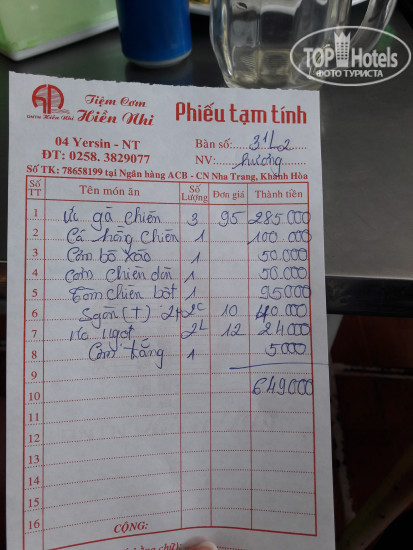 TOP Hotels
ФОТО ТУРИСТА
Tiệm Cơm
Hiền Nhi
Phiếu tạm tính
04 Yersin - NT
ĐT: 0258. 3829077
Bàn số: 31/2
NV: hương
Số TK: 78658199 tại Ngân hàng ACB - CN Nha Trang, Khánh Hòa
Số TT Tên món ăn Số Lượng Đơn giá Thành tiền
1 Ức gà chiên 3 95 285.000
2 Cá hồng chiên 1 100.000
3 Cơm bò xào 1 50.000
4 Cơm chiên 1 50.000
5 Tôm chiên bột 1 95000
6 Sgòn (T) 2C 10 40.000
7 ngọt 2L 12 24000
8 Cơm trắng 1 5000
9
10 649.000
11
12
13
14
15
16
CỘNG: